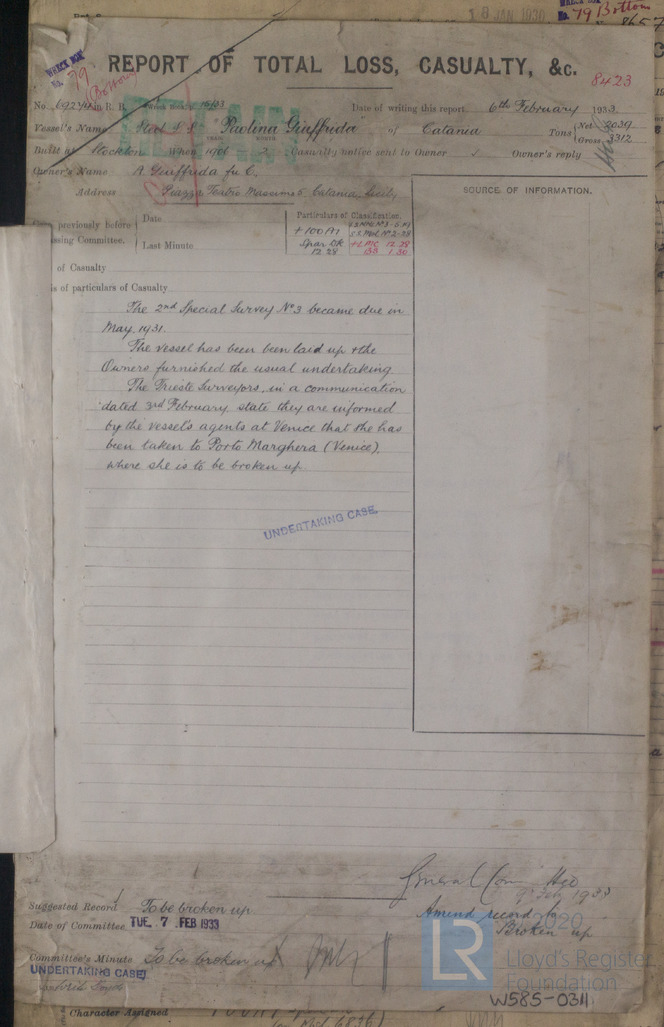 18 JAN 1930
WRECK BOX
No. 79 Bottom
8657
WRECK BOX
No. 79
(Bottom)
REPORT OF TOTAL LOSS, CASUALTY, &c.
8423
No. 69244 in R. B. Date of writing this report 6th February 1933.
RETAIN
Vessel's Name Steel S.S. "Paolina Giuffrida" of Catania Tons Net 2039
Gross 3312
Built at Stockton When 1906 Casualty notice sent to Owner Owner's reply
Owner's Name A. Giuffrida fu C.
Address Piazza Teatro Massimo 5, Catania, Sicily
SOURCE OF INFORMATION.
previously before
Committee.
Date
Last Minute
Particulars of Classification.
+100A1
Spar Dk
12.28
+LMC 12.28
1.30
of Casualty
of particulars of Casualty
The 2nd Special Survey No 3 became due in
May, 1931.
The vessel has been been laid up & the
Owners furnished the usual undertaking.
The Trieste Surveyors, in a communication
dated 3rd February state they are informed
by the vessel's agents at Venice that she has
been taken to Porto Marghera (Venice),
where she is to be broken up.
UNDERTAKING CASE.
General Com
9 Feb 1933
Suggested Record To be broken up
Amend record to
Broken up
Date of Committee TUE. 7 FEB 1933
Committee's Minute To be broken up
UNDERTAKING CASE
Character Assigned
2020
LR
Lloyd's Register
Foundation
W585-0311